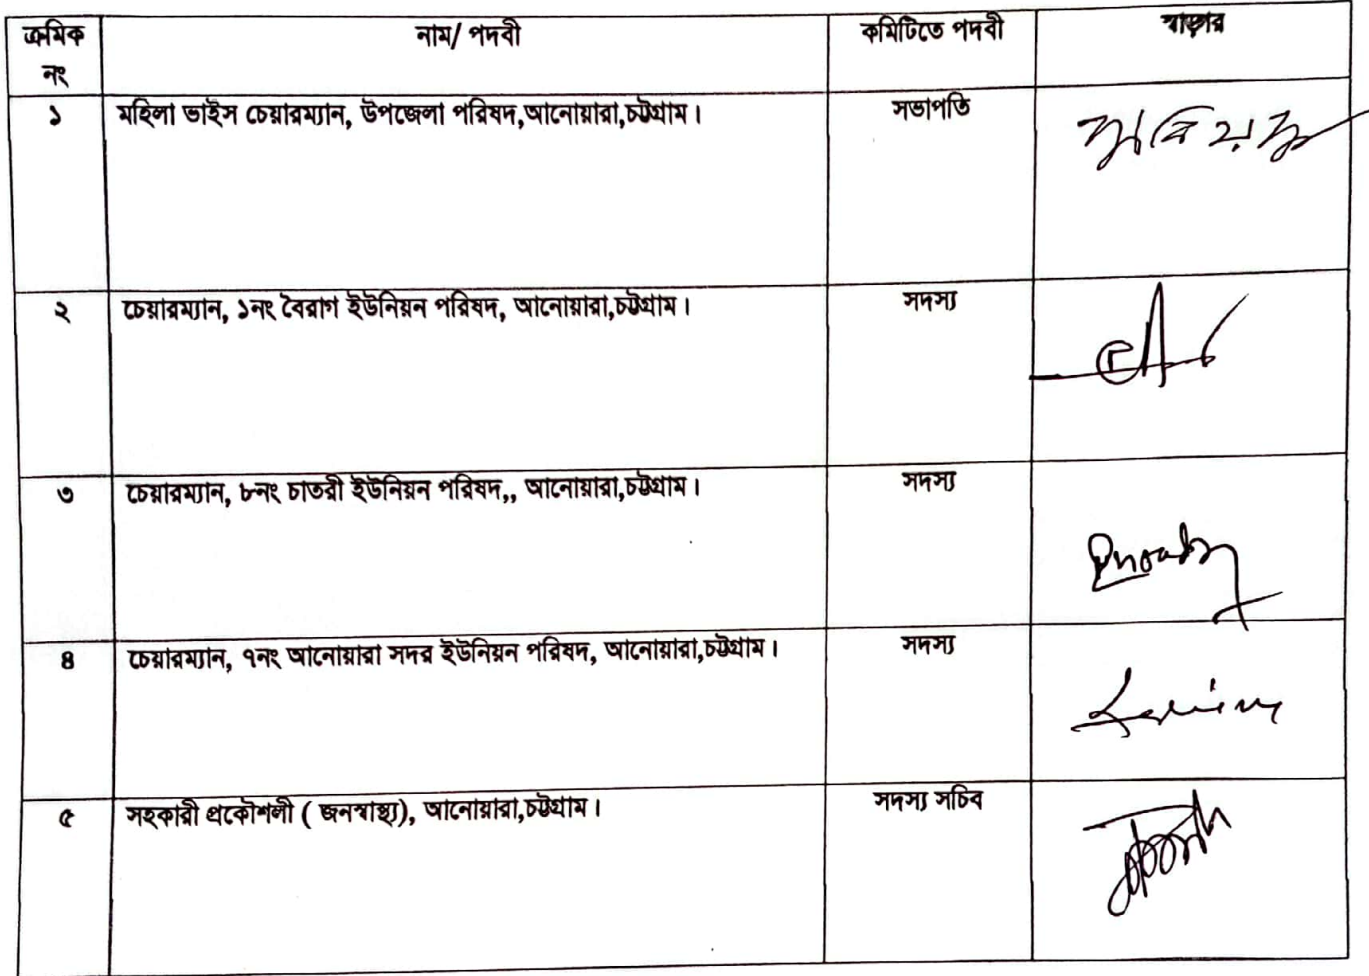 ক্রমিক নং
নাম/ পদবী
কমিটিতে পদবী
স্বাক্ষর
১
মহিলা ভাইস চেয়ারম্যান, উপজেলা পরিষদ,আনোয়ারা,চট্টগ্রাম।
সভাপতি
২
চেয়ারম্যান, ১নং বৈরাগ ইউনিয়ন পরিষদ, আনোয়ারা,চট্টগ্রাম।
সদস্য
৩
চেয়ারম্যান, ৮নং চাতরী ইউনিয়ন পরিষদ,, আনোয়ারা,চট্টগ্রাম।
সদস্য
৪
চেয়ারম্যান, ৭নং আনোয়ারা সদর ইউনিয়ন পরিষদ, আনোয়ারা,চট্টগ্রাম।
সদস্য
৫
সহকারী প্রকৌশলী ( জনস্বাস্থ্য), আনোয়ারা,চট্টগ্রাম।
সদস্য সচিব